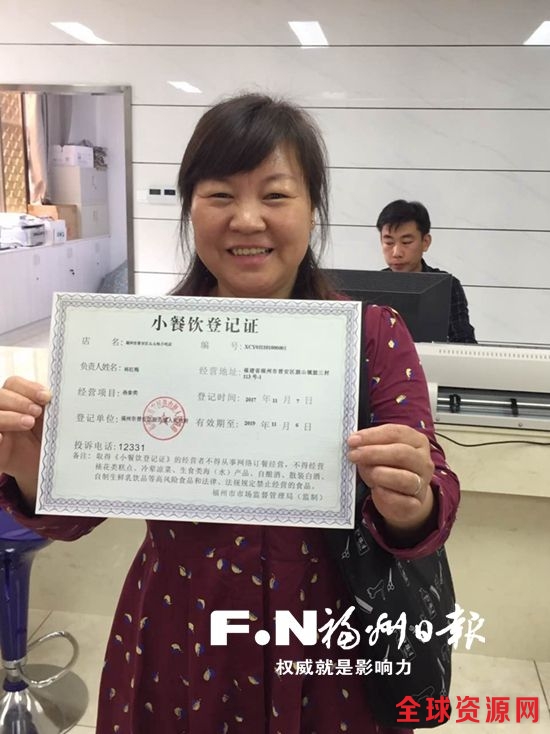 小餐饮登记证
店 名:
编 号: XCY0111101000001
负责人姓名:
经营地址: 福建省福州市晋安区鼓山镇前三村
113号-1
经营项目: 热食类
登记时间: 2017 年 11 月 7 日
登记单位:
有效期至: 2019 年 11 月 6 日
投诉电话:12331
备注:取得《小餐饮登记证》的经营者不得从事网络订餐经营,不得经营
裱花类糕点、冷荤凉菜、生食类海(水)产品、自酿酒、散装白酒、
自制生鲜乳饮品等高风险食品和法律、法规规定禁止经营的食品。
福州市市场监督管理局(监制)
F.N福州日报
权威就是影响力
全球资源网